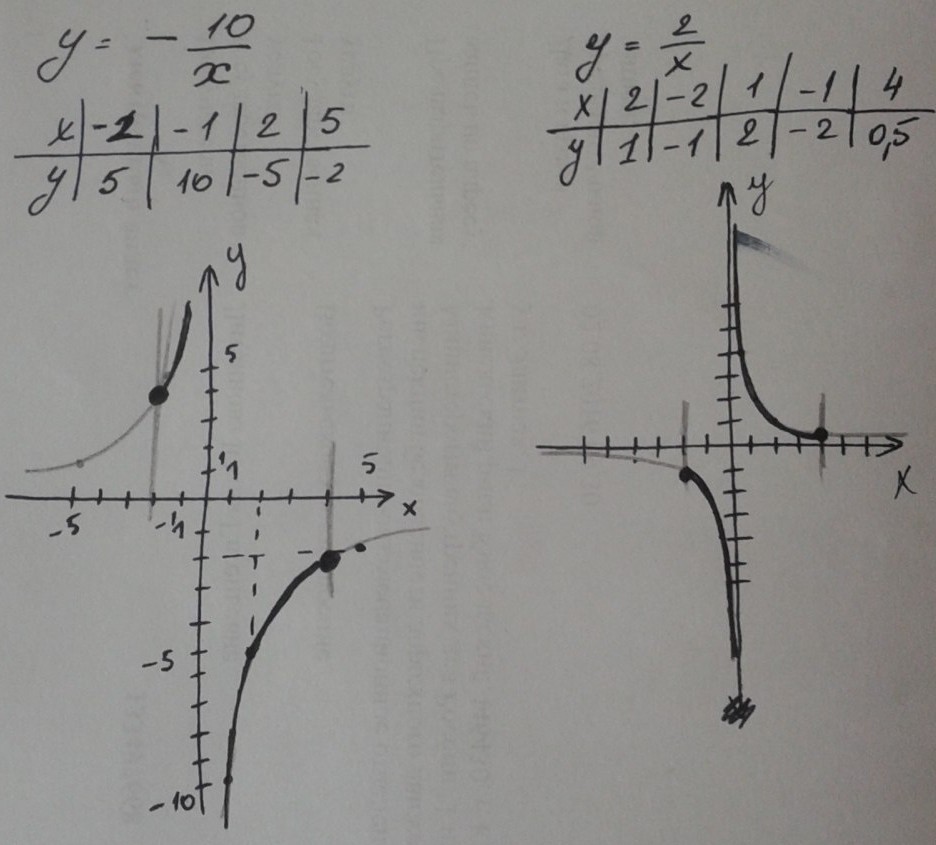 y = - 10/x
x | -2 | -1 | 2 | 5
y | 5 | 10 | -5 | -2
y
5
1
5
-5
-1
x
-5
-10
y = 2/x
x | 2 | -2 | 1 | -1 | 4
y | 1 | -1 | 2 | -2 | 0,5
y
x